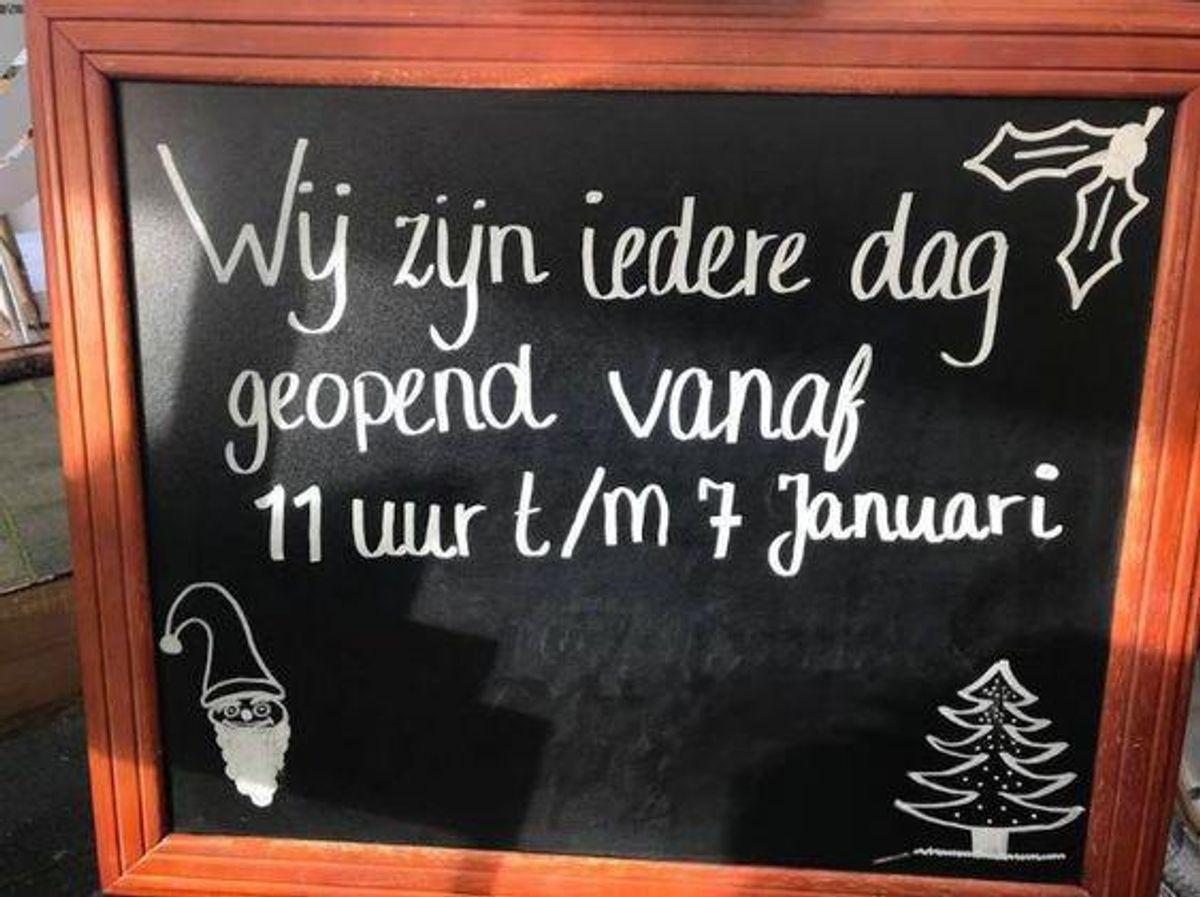 Wij zijn iedere dag
geopend vanaf
11 uur t/m 7 Januari